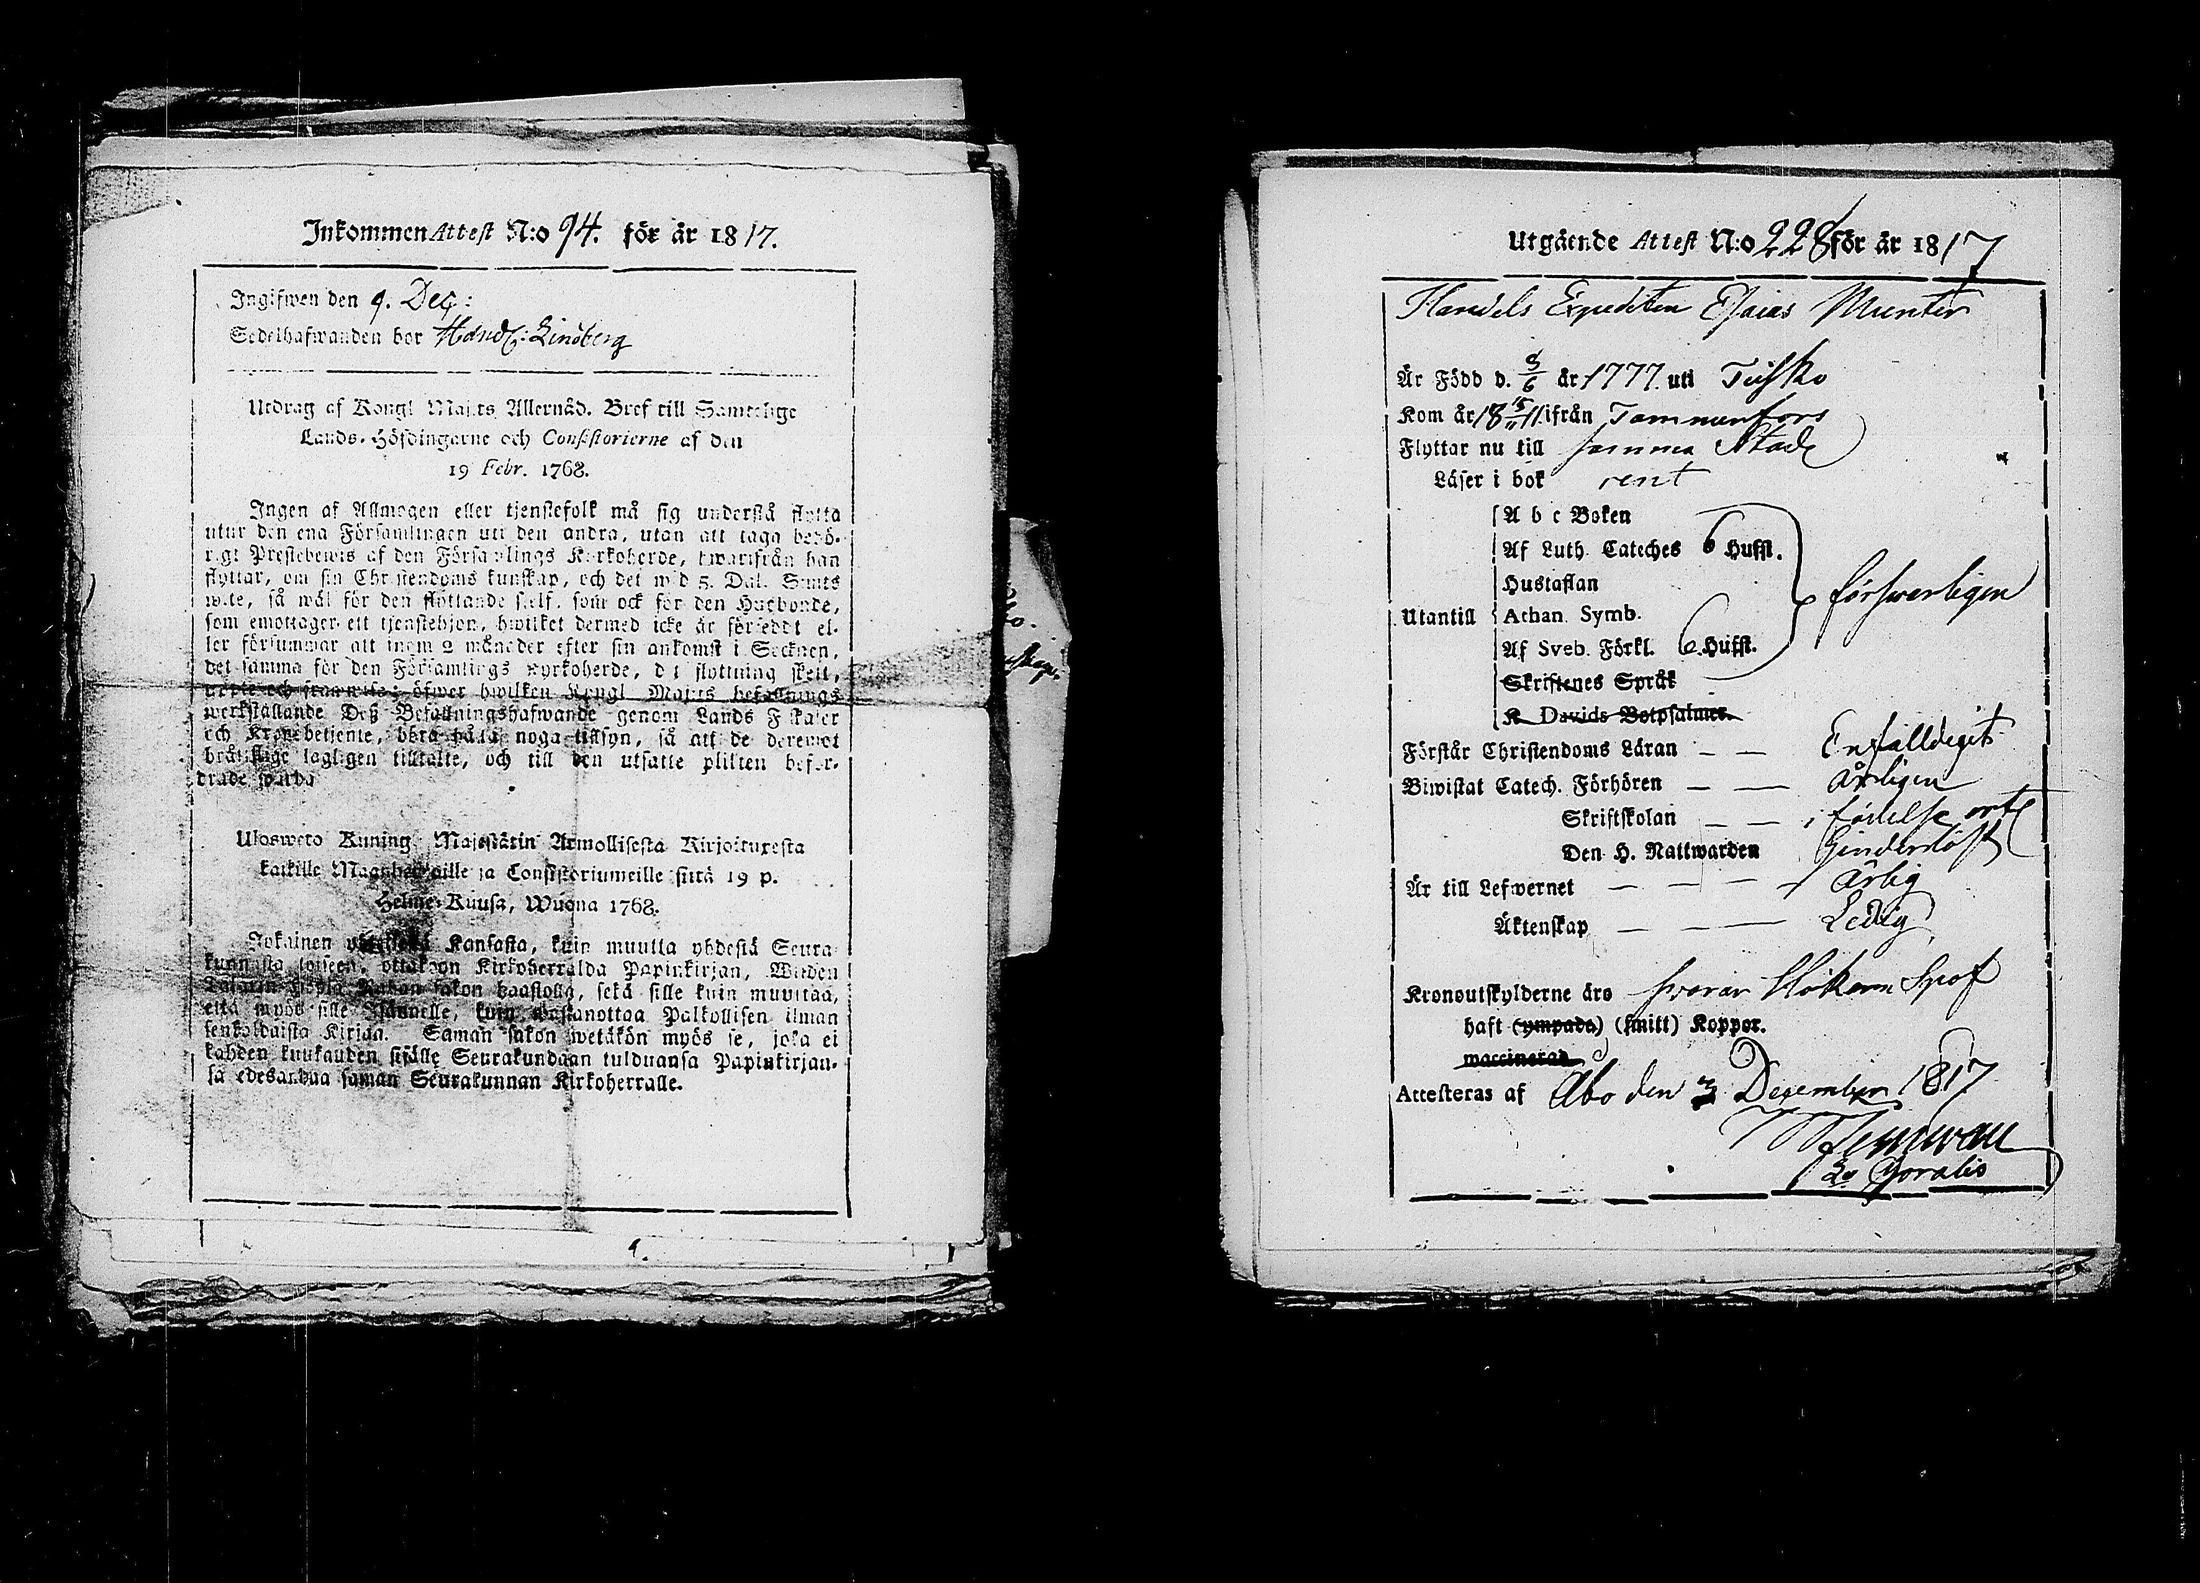 Inkommen Attest N:o 94. för år 1817.
Ingifwen den 9. Dec:
Sedelhafwanden bor Handl: Lindberg
Utdrag af Kongl Maj:ts Allernåd. Bref till Samtelige
Lands-Höfdingarne och Consistorierne af den
19 Febr. 1768.
Ingen af Allmogen eller tjenstefolk må sig understå flytta
utur den ena Församlingen uti den andra, utan att taga behö-
rigt Prestebewis af den Församlings Kyrkoherde, hwarifrån han
flyttar, om sin Christendoms kunskap, och det wid 5. Dal. S:mts
wite, så wäl för den flyttande sielf, som ock för den Husbonde,
som emottager ett tjenstehjon, hwilket dermed icke är försedt el-
ler försummar att inom 2 månader efter sin ankomst i Socknen,
det samma för den Församlings Kyrkoherde, dit flyttning skett,
upte och framwisa; öfwer hwilken Kongl Maj:ts befallnings
werkställande Deß Befallningshafwande genom Lands Fiskaler
och Kronobetjente, böra hålla noga tillsyn, så att de deremot
bråttslige lagligen tilltalte, och till den utsatte plikten befor-
drade warda
Ulosweto Kuning. Majestätin Armollisesta Kirjoituxesta
kaikille Maanherroille ja Consistoriumeille siitä 19 p.
Helme-Kuusa, Wuonna 1768.
Jokainen yhteisestä Kansasta, kuin muutta yhdestä Seura-
kunnasta toiseen, ottakoon Kirkoherralda Papinkirjan, Wiiden
Talarin Hopia Rahan sakon haastolla, sekä sille kuin muuttaa,
että myös sille Isännelle, kuin wastanottaa Palkollisen ilman
senkaldaista Kirjaa. Saman sakon wetäkön myös se, joka ei
kahden kuukauden sisälle Seurakundaan tulduansa Papinkirjan-
sa edesanna saman Seurakunnan Kirkoherralle.
Utgående Attest N:o 228 för år 1817
Handels Expediten Esaias Munter
Är Född d. 5/6 år 1777 uti Tuisko
Kom år 18 15/11 11 ifrån Tammerfors
Flyttar nu till samma Stad
Läser i bok rent
A b c Boken
Af Luth. Cateches 6 Hufst.
Hustaflan
Utantill Athan. Symb. försvarligen
Af Sveb. Förkl. 6 Hufst.
Skriftenes Språk
K Davids Botpsalmer.
Förstår Christendoms Läran — — Enfalldigt
Biwistat Catech. Förhören — — årligen
Skriftskolan — — i födelse orte
Den H. Nattwarden hinderslöst
Är till Lefwernet — — — — ärlig
Äktenskap — — — Ledig
Kronoutskylderne äro svarar Hökaren
haft (ympade) (smitt) Koppor.
waccinerad
Attesteras af Åbo den 3 December 1817